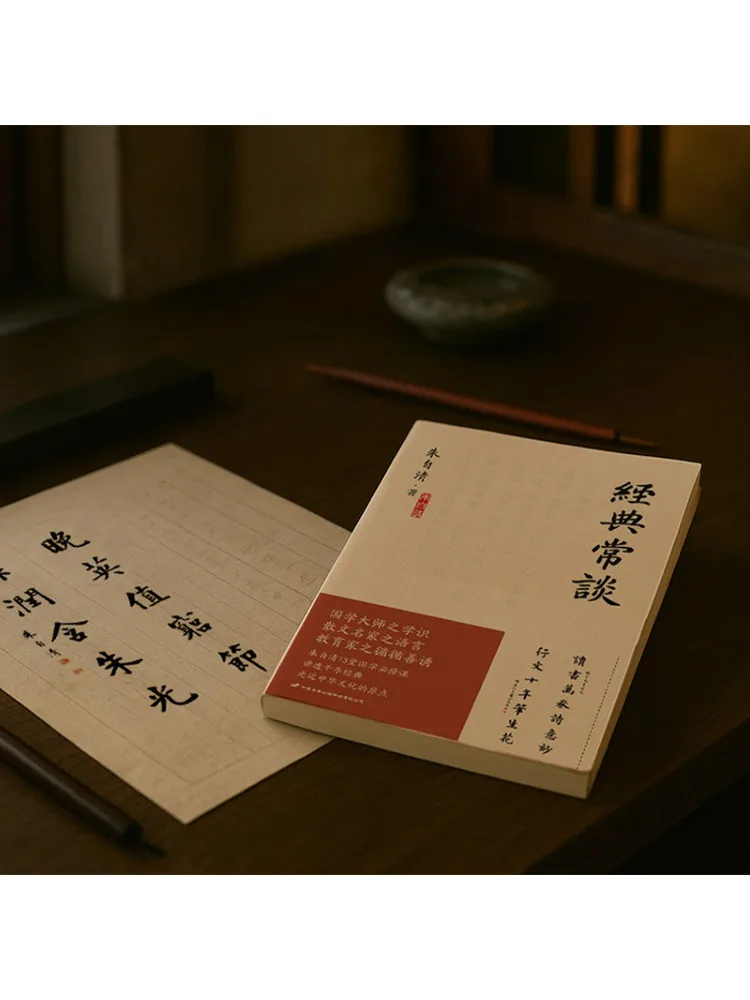 經典常談
朱自清·著
国学大师之学识
散文名家之语言
教育家之循循善诱
朱自清13堂国学必修课
讲透千年经典
走近中华文化的原点
讀書萬 詩意妙
行文十年筆生花
晚英值窮節
潤含朱光
朱自清